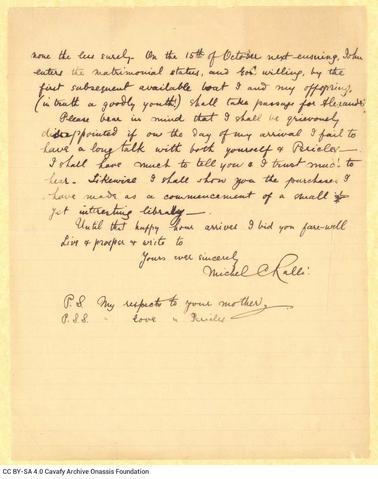 none the less surely. On the 15th of October next ensuing, John
enters the matrimonial status, and God willing, by the
first subsequent available boat I and my offspring,
(in truth a goodly youth!) shall take passage for Alexandr:
Please bear in mind that I shall be grievously
disappointed if on the day of my arrival I fail to
have a long talk with both yourself & Pericles—
I shall have much to tell you & I trust much to
hear. Likewise I shall show you the purchases I
have made as a commencement of a small
yet interesting library—.
Until that happy hour arrives I bid you fare-well
Live & prosper & write to
Yours ever sincerely
Michel Ralli
P.S. My respects to your mother.
P.S.S. " love " Pericles
CC BY-SA 4.0 Cavafy Archive Onassis Foundation